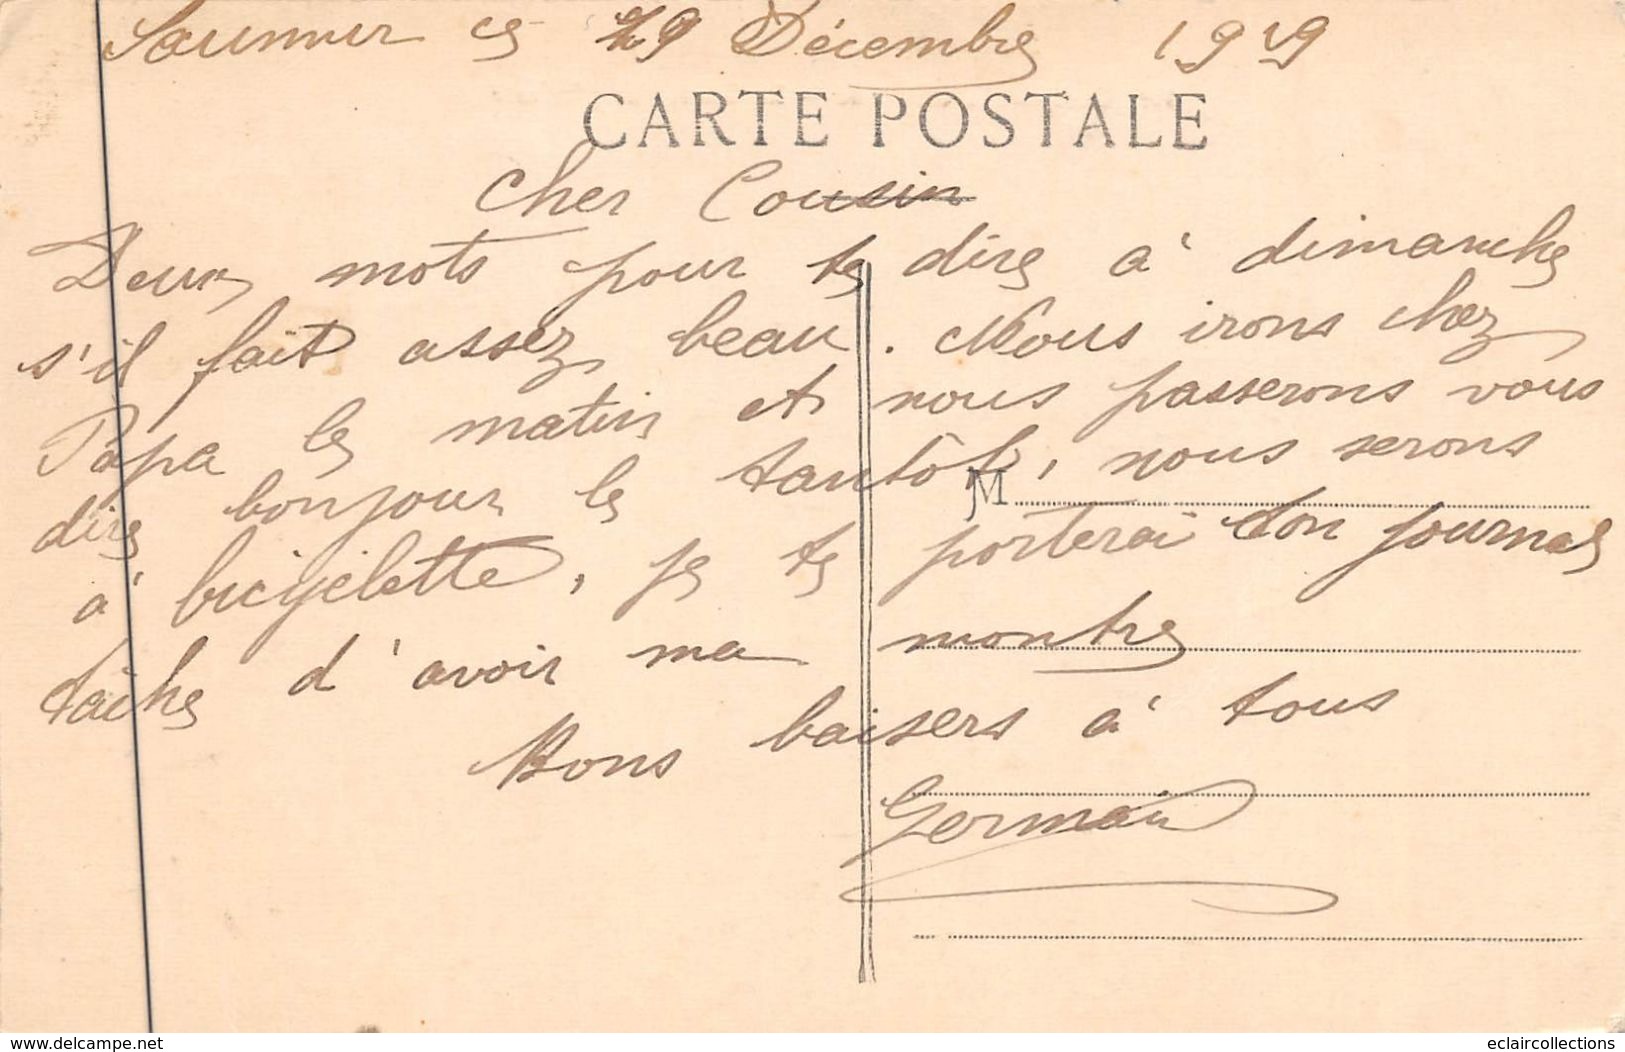 Saumur ce 29 Décembre 1919
CARTE POSTALE
Cher Cousin
Deux mots pour te dire à dimanche
s'il fait assez beau. Nous irons chez
Papa le matin et nous passerons vous
dire bonjour le tantôt, nous serons
M
à bicyclette, je te porterai ton journal
tâche d'avoir ma montre
Bons baisers à tous
Germain
delcampe.net
eclaircollections